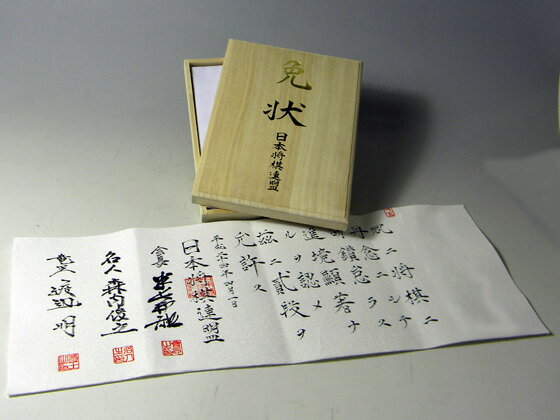 免状
日本将棋連盟
夙ニ将棋ニ
丹念ニシテ
研鑽怠ラス
進境顕著ナ
ルヲ認メ
茲ニ貳段ヲ
允許ス
平成二十四年四月一日
日本将棋連盟
会長 米長邦雄
名人 森内俊之
竜王 渡辺明